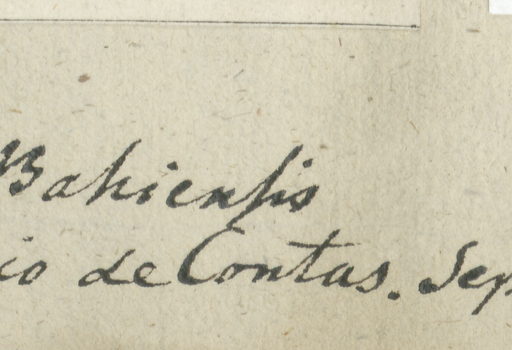 Bahiensis
io de Contas. Sep